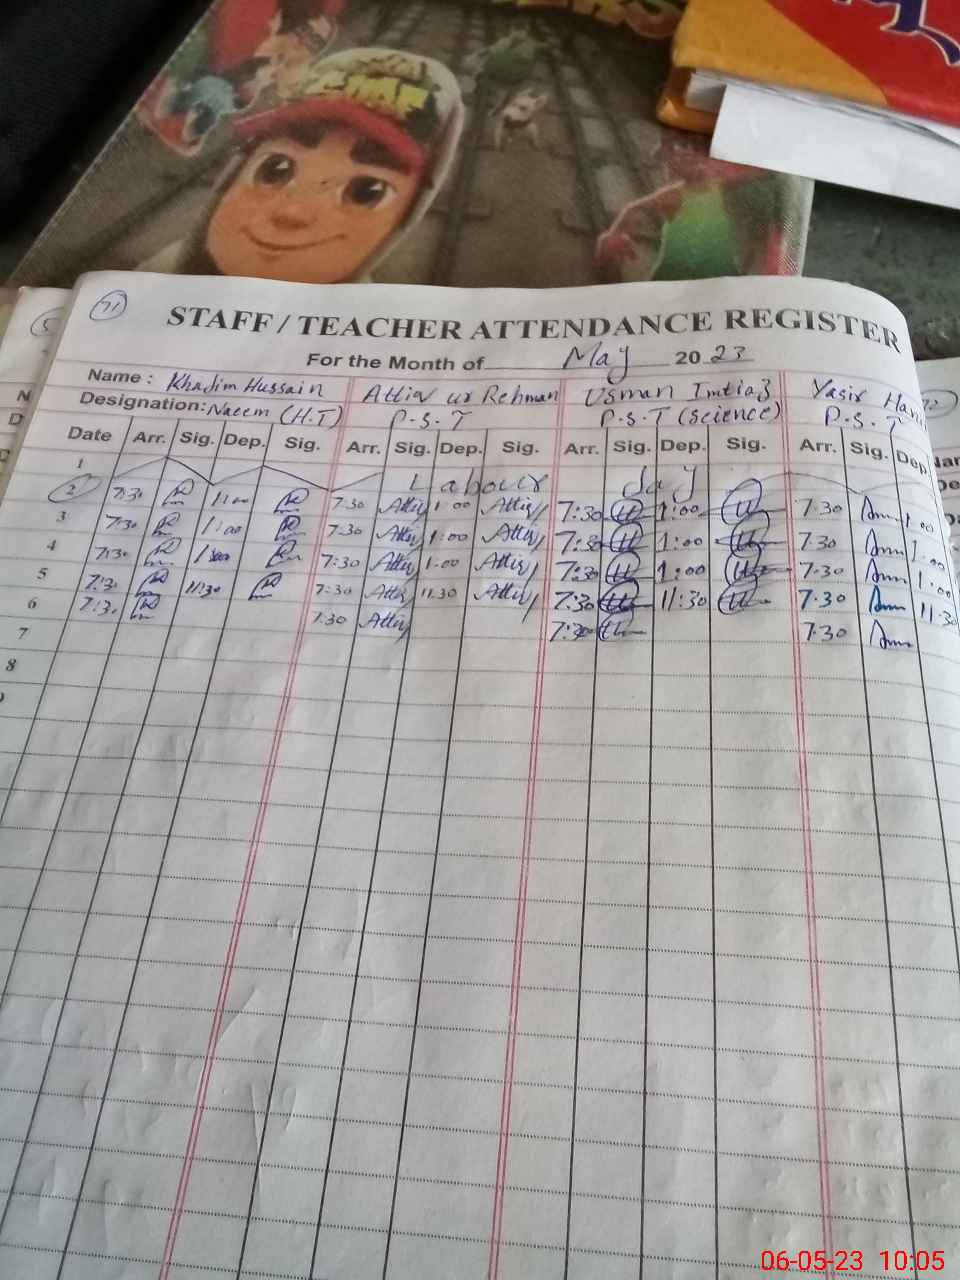 71
STAFF / TEACHER ATTENDANCE REGISTER
For the Month of May 2023
Name : Khadim Hussain Attiq ur Rehman Usman Imtiaz Yasir
Designation: Naeem (H.T) P.S.T P.S.T (Science) P.S.T
Date Arr. Sig. Dep. Sig. Arr. Sig. Dep. Sig. Arr. Sig. Dep. Sig. Arr. Sig. Dep.
1 Labour Day
2 7:30 1:00 7:30 Attiq 1:00 Attiq 7:30 1:00 7:30 1:00
3 7:30 1:00 7:30 Attiq 1:00 Attiq 7:30 1:00 7:30 1:00
4 7:30 1:00 7:30 Attiq 1:00 Attiq 7:30 1:00 7:30 1:00
5 7:30 11:30 7:30 Attiq 11:30 Attiq 7:30 11:30 7:30 11:30
6 7:30 7:30 Attiq 7:30 7:30
7
8
06-05-23 10:05